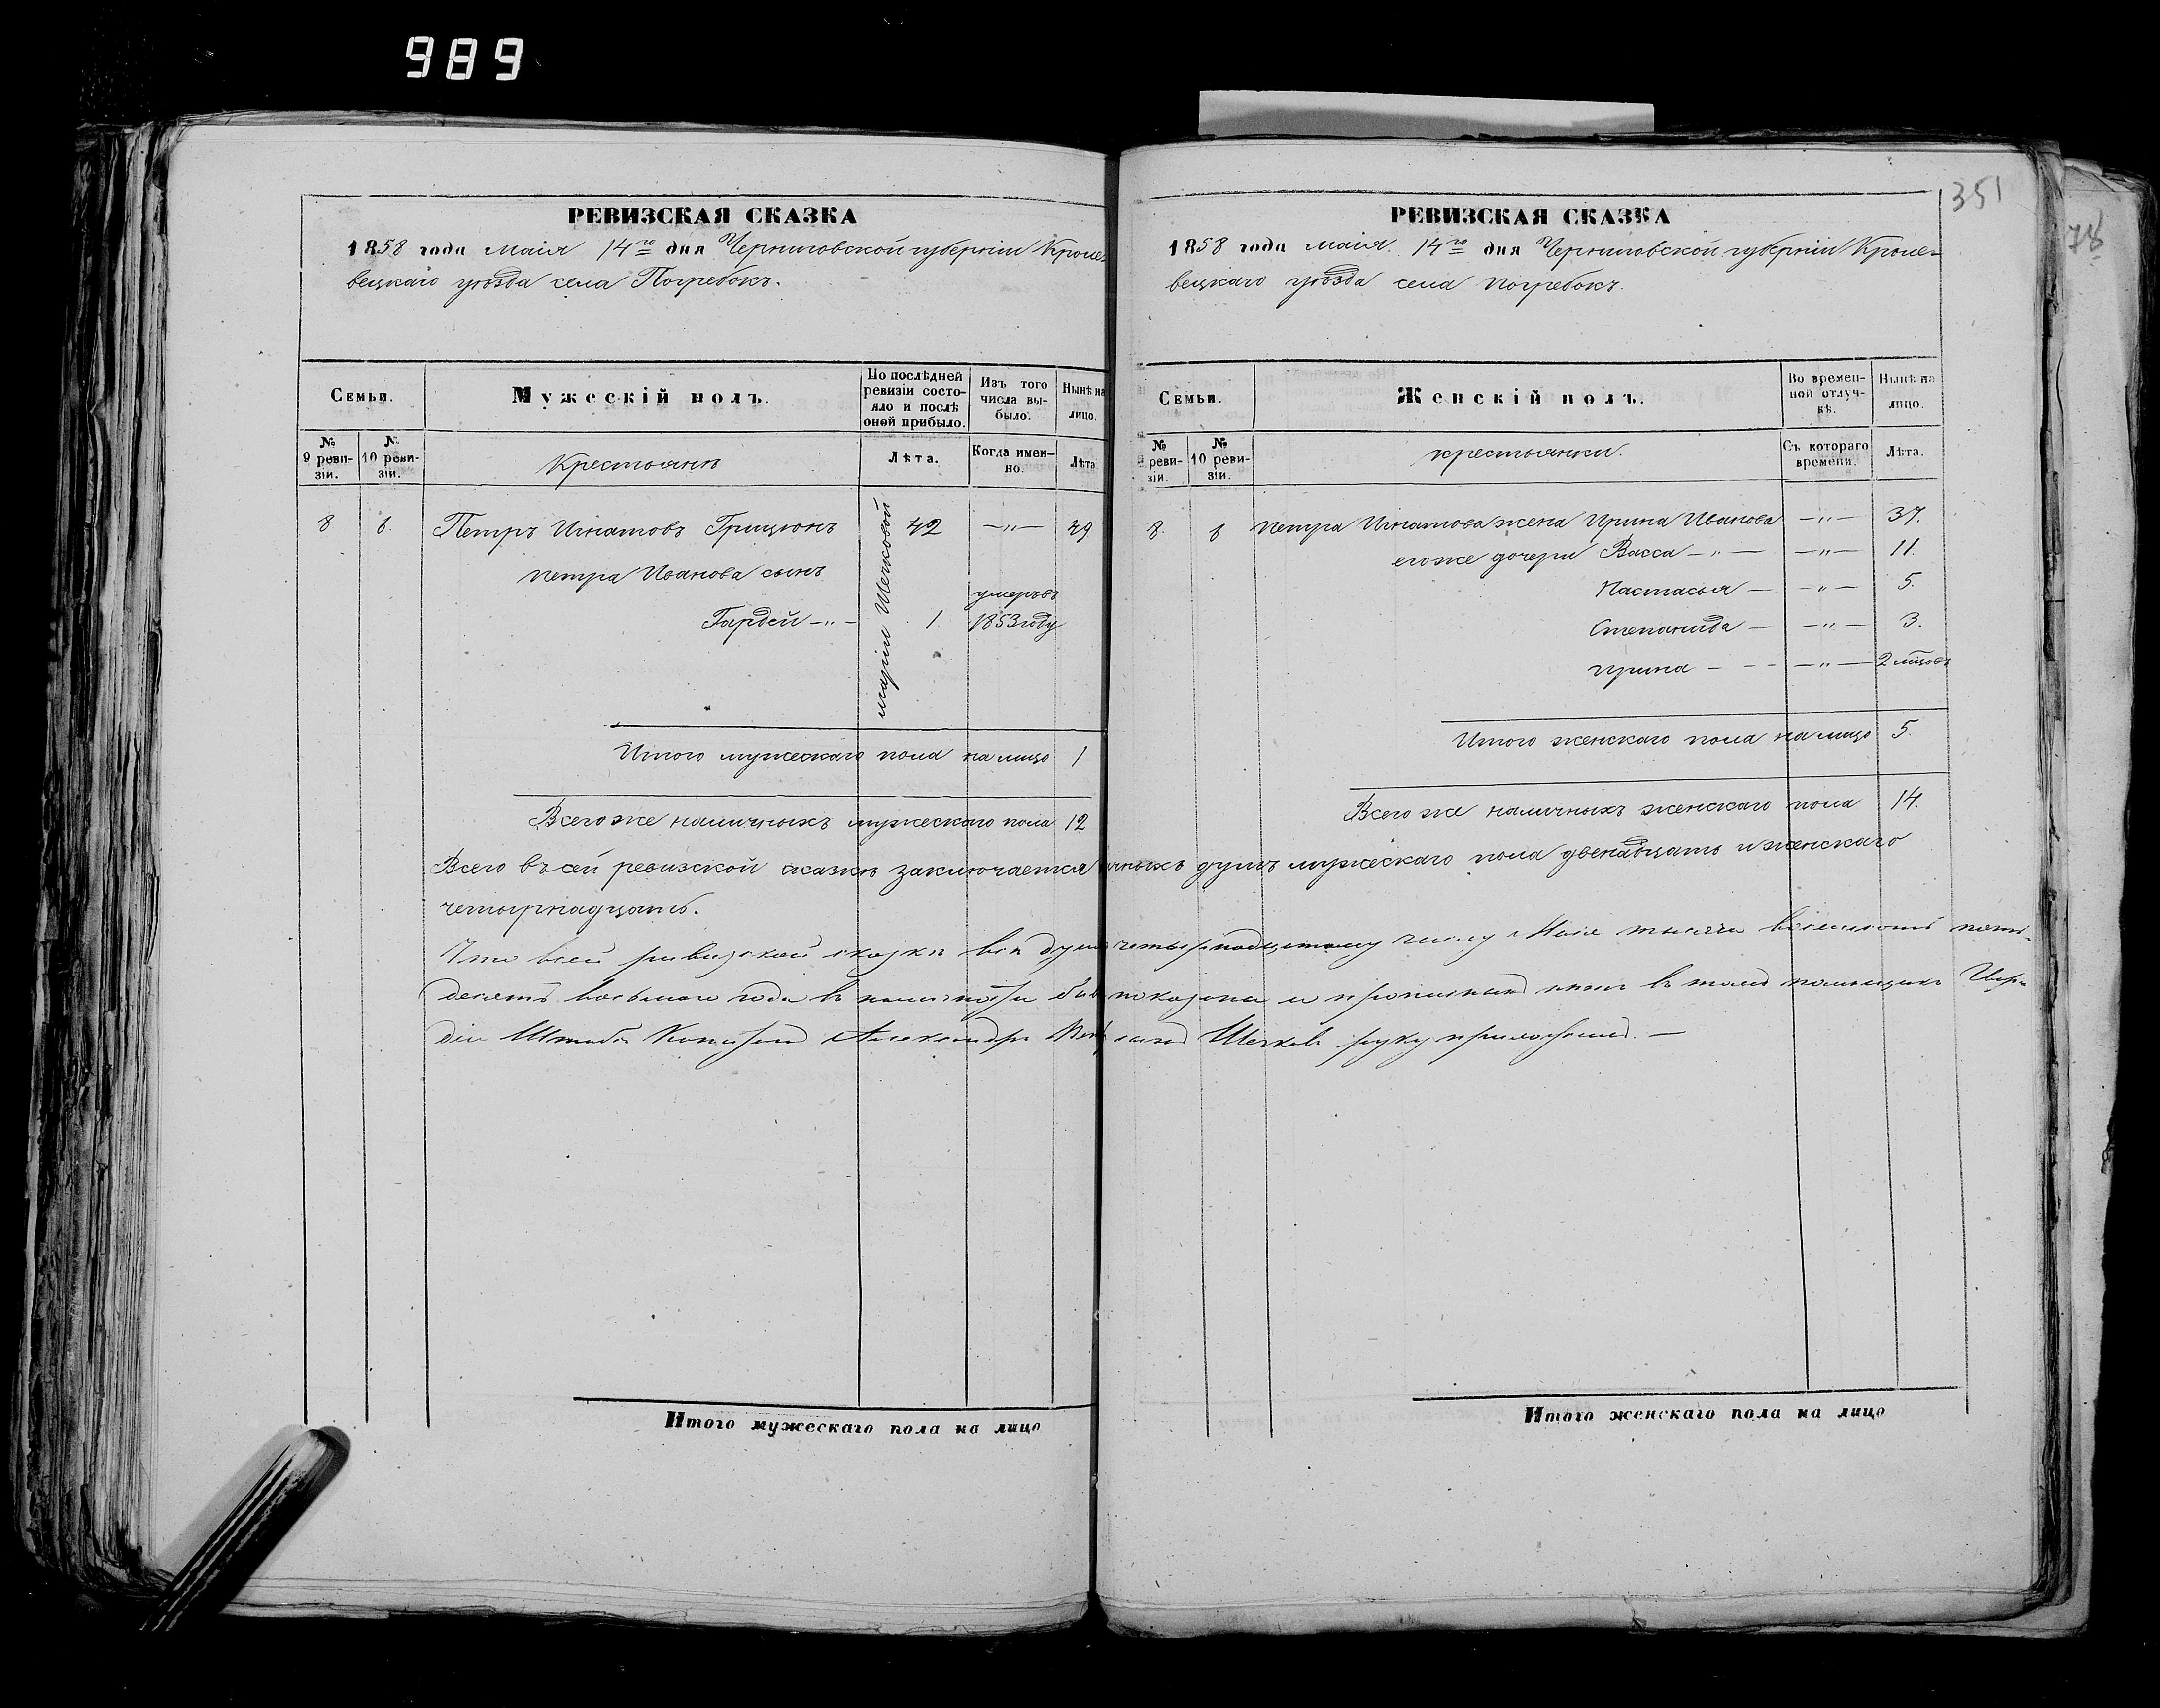 989
РЕВИЗСКАЯ СКАЗКА
1858 года маія 14го дня Черниговской губерніи Кроле-
вецкаго уѣзда села Погребокъ.
Семьи.
Мужескій полъ.
По послѣдней ревизіи состояло и послѣ оной прибыло.
Изъ того числа выбыло.
Нынѣ на лицо.
№ 9 ревизіи.
№ 10 ревизіи.
Крестьянѣ
Лѣта.
Когда именно.
Лѣта
8 8. Петръ Игнатовъ Грицюкъ 42 —"— 49
Петра Иванова сынъ
Гардей —"— 1 умеръ въ 1853 году
марiи Шечковой
Итого мужескаго пола на лицо 1
Всего же наличныхъ мужескаго пола 12
351
78
РЕВИЗСКАЯ СКАЗКА
1858 года маія 14го дня Черниговской губерніи Кроле-
вецкаго уѣзда села погребокъ.
Семьи.
Женскій полъ.
Во временной отлучкѣ.
Нынѣ на лицо.
№ ревизіи.
№ 10 ревизіи.
крестьянки.
Съ котораго времени.
Лѣта.
8. 8 петра Игнатова жена Ирина Иванова —"— 37.
его же дочери Васса —"— —"— 11.
Настасья — —"— 5.
Степанида — —"— 3.
Ирина — - - —"— 2 мѣсяцовъ
Итого женскаго пола на лицо 5.
Всего же наличныхъ женскаго пола 14.
Всего въ сей ревизской сказкѣ заключается душъ мужескаго пола двенадцать и женскаго
четырнадцать.
Что в сей ревизской сказке все души четырнадцатому числу Маія тысяча восемсотъ пять-
десять восьмаго года показаны и в томъ помещикъ
Штабсъ Капитанъ Александръ Шечковъ руку приложилъ. —
Итого мужескаго пола на лицо
Итого женскаго пола на лицо